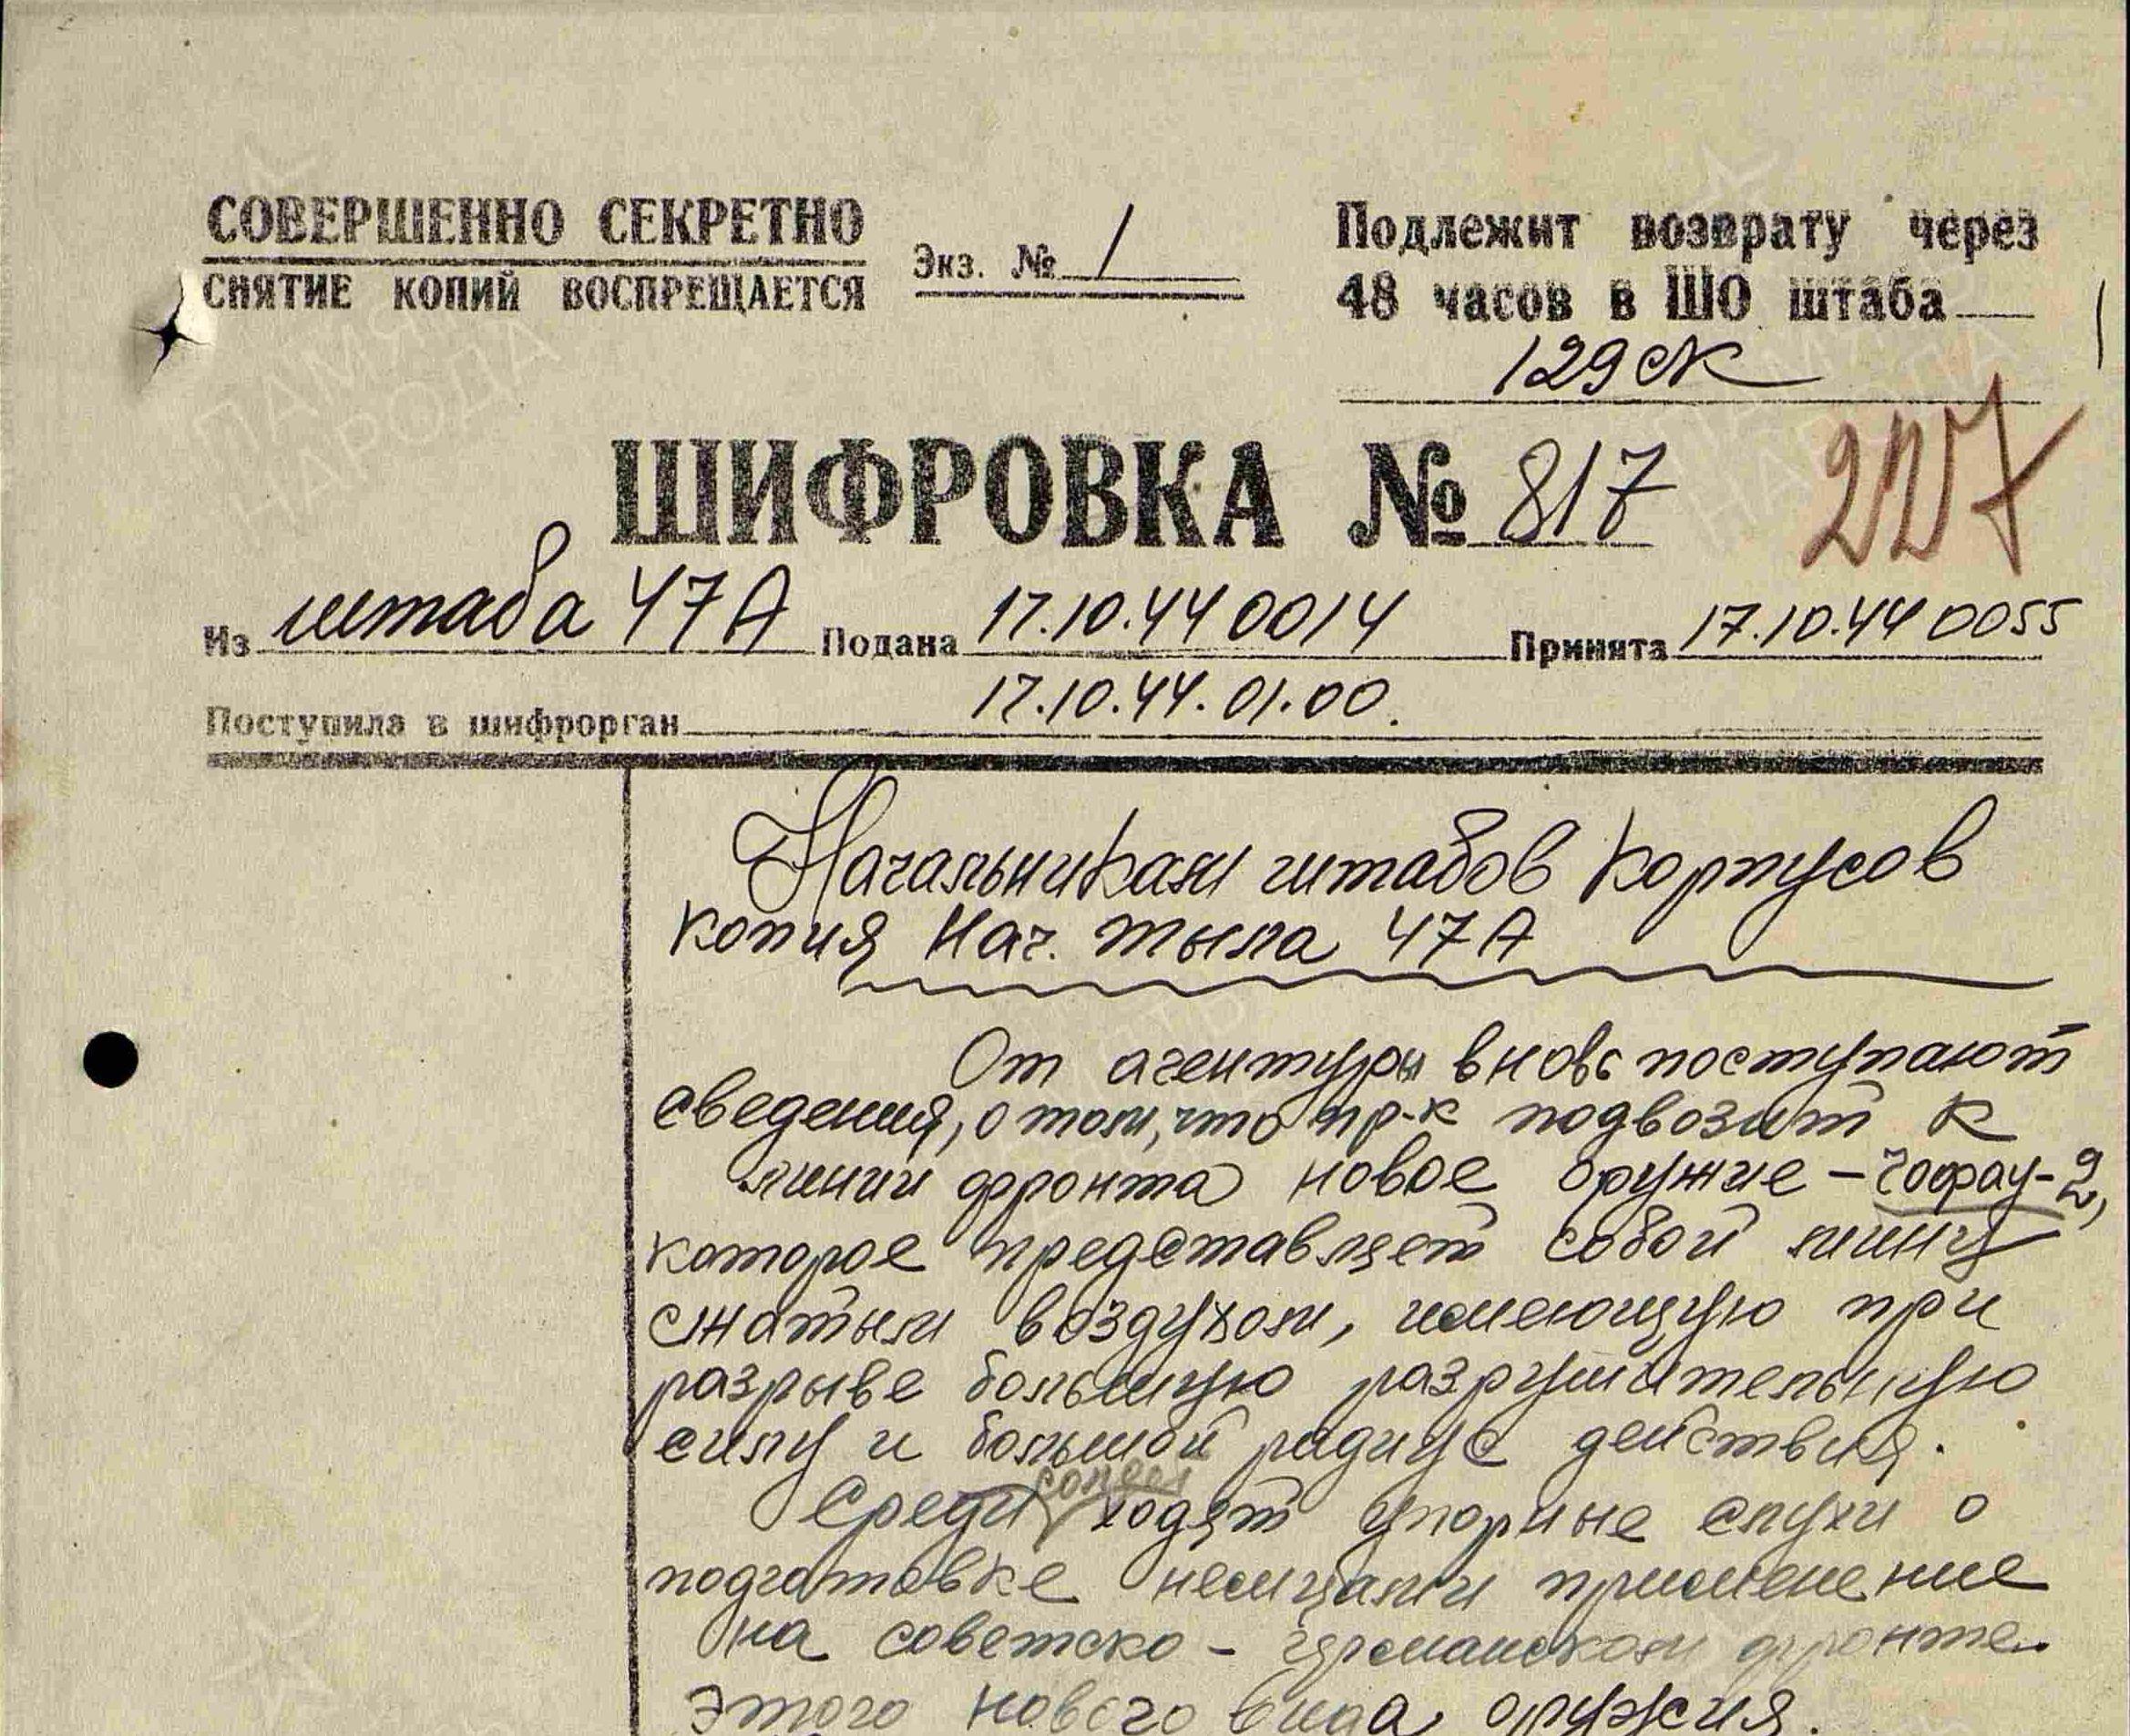 СОВЕРШЕННО СЕКРЕТНО
СНЯТИЕ КОПИЙ ВОСПРЕЩАЕТСЯ
Экз. № 1
Подлежит возврату через
48 часов в ШО штаба
129 СК
ШИФРОВКА № 817
227
Из штаба 47А Подана 17.10.44 0014 Принята 17.10.44 0055
Поступила в шифрорган 17.10.44. 01.00.
Начальникам штабов корпусов
копия Нач. тыла 47А
От агентуры вновь поступают
сведения, о том, что пр-к подвозит к
линии фронта новое оружие –
которое представляет собой мину
сжатым воздухом, имеющую при
разрыве большую разрушительную
силу и большой радиус действия.
Среди ходят упорные слухи о
подготовке немцами применение
на советско - германском фронте
этого нового вида оружия.
ПАМЯТЬ
НАРОДА